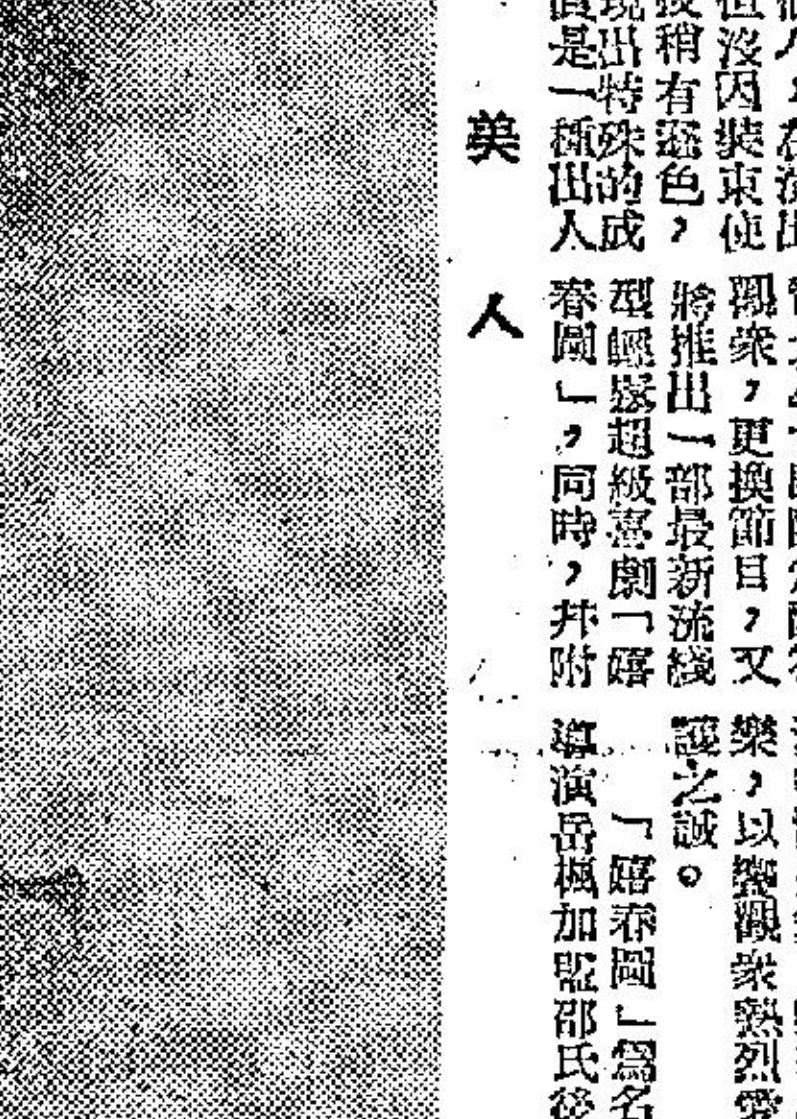 但沒因裝束使
技稍有遜色，
現出特殊的成
真是一種出人
觀衆，更換節目，又
將推出一部最新流綫
型輕鬆超級喜劇「嬉
春圖」，同時，幷附
樂，以饗觀衆熱烈愛
護之誠。
「嬉春圖」爲名
導演岳楓加盟邵氏後
美人